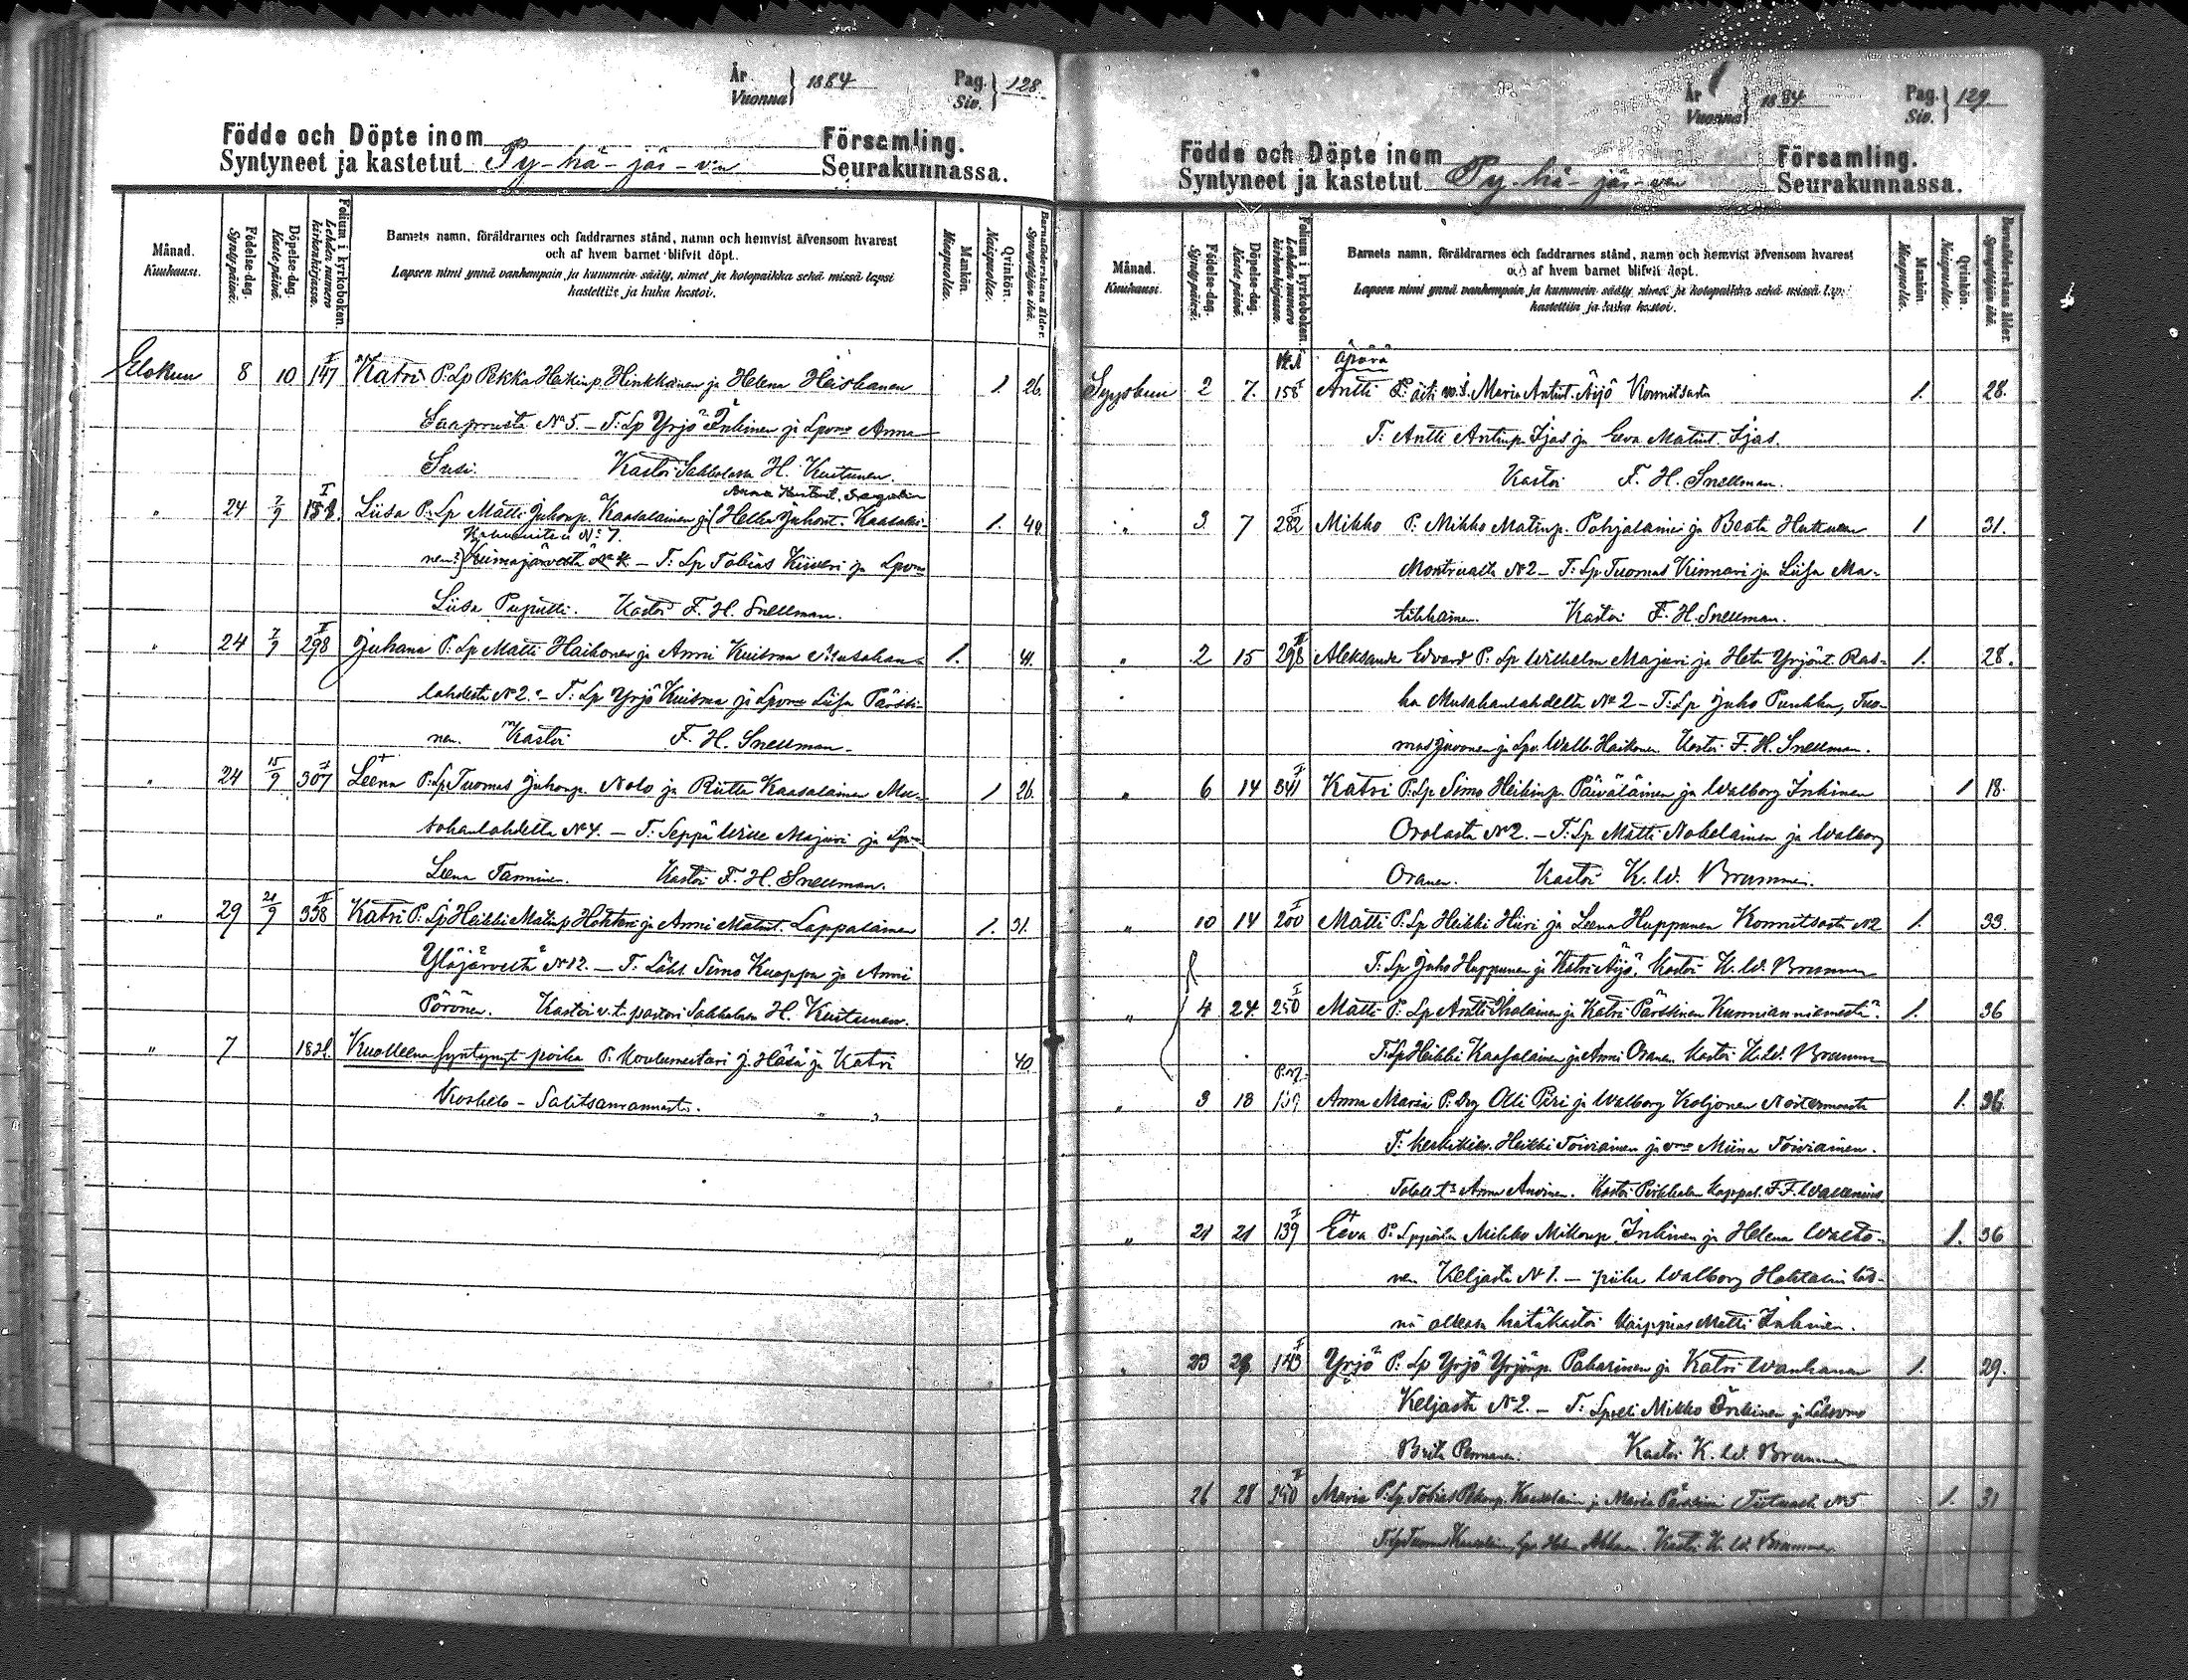 År
Vuonna } 1884
Pag.
Siv. } 128.
Födde och Döpte inom Församling.
Syntyneet ja kastetut Py-hä-jär-ven Seurakunnassa.
Månad.
Kuukausi.
Födelse-dag.
Syntymäpäivä.
Döpelse-dag.
Kastepäivä.
Folium i kyrkoboken.
Lehden numero kirkonkirjassa.
Barnets namn, föräldrarnes och faddrarnes stånd, namn och hemvist äfvensom hvarest
och af hvem barnet blifvit döpt.
Lapsen nimi ynnä vanhempain ja kummein sääty, nimet ja kotopaikka sekä missä lapsi
kastettiin ja kuka kastoi.
Mankön.
Miespuolia.
Qvinkön.
Naispuolia.
Barnaföderskans ålder.
Synnyttäjän ikä.
Elokuu 8 10 I 147 Katri P: Lp Pekka Heikinp. Hinkkanen ja Helena Heiskanen 1. 26.
N:o 5. - T: Lp Yrjö Inkinen ja Lpvmo Anna
Susi. Kastoi Sakkolassa H. Kuitunen.
" 24 7/9 I 158. Liisa P: Lp Matti Juhonp. Kaasalainen ja (Hella Juhont. Kaasalai- 1. 44
N:o 7.
nen) - T: Lp Tobias Kiiveri ja Lpvmo
Liisa Puputti. Kastoi F. H. Snellman.
" 24 7/9 I 298 Juhana P: Lp Matti Haikonen ja Anni Kuisma Musakan- 1. 41.
lahdesta N:o 2. - T: Lp Yrjö Kuisma ja Lpvmo Liisa Pärssi-
nen. Kastoi F. H. Snellman.
" 24 15/9 I 307 Leena P: Lp Tuomas Juhonp. Nolo ja Riitta Kaasalainen Mu- 1 26.
sakanlahdelta N:o 4. - T: Seppä Wille Majuri ja Lpvmo
Leena Tamminen. Kastoi F. H. Snellman.
" 29 21/9 II 338 Katri P: Lp Heikki Matinp. ja Anni Matint. Lappalainen 1. 31.
Yläjärveltä N:o 12. - T: Simo Kuoppa ja Anni
Pörönen. Kastoi v. t. pastori Sakkolassa H. Kuitunen.
" 7 Kuolleena syntynyt poika P. koulumestari J. Häsä ja Katri 40
Koskelo -
År
Vuonna } 1884
Pag.
Siv. } 129
Födde och Döpte inom Församling.
Syntyneet ja kastetut Py-hä-jär-ven Seurakunnassa.
Månad.
Kuukausi.
Födelse-dag.
Syntymäpäivä.
Döpelse-dag.
Kastepäivä.
Folium i kyrkoboken.
Lehden numero kirkonkirjassa.
Barnets namn, föräldrarnes och faddrarnes stånd, namn och hemvist äfvensom hvarest
och af hvem barnet blifvit döpt.
Lapsen nimi ynnä vanhempain ja kummein sääty, nimet ja kotopaikka sekä missä lapsi
kastettiin ja kuka kastoi.
Mankön.
Miespuolia.
Qvinkön.
Naispuolia.
Barnaföderskans ålder.
Synnyttäjän ikä.
Äpärä
Syyskuu 2 7. 158 Antti P: äiti Maria Antint. Äijö Konnitsasta 1. 28.
T: Antti Antinp. Ijas ja Eeva Matint. Ijas.
Kastoi F. H. Snellman.
" 3 7 I 282 Mikko P: Mikko Matinp. Pohjalainen ja Beata Huttunen 1 31.
Montrualta N:o 2 - T: Lp Tuomas Kinnari ja Liisa Ma-
tikkainen. Kastoi F. H. Snellman.
" 2 15 II 298 Aleksander Edvard P: Lp Wilhelm Majuri ja Heta Yrjönt. Ras- 1. 28.
ka Musakanlahdelta N:o 2 - T: Lp Juho Punkka, Tuo-
mas Juvonen ja Lpv. Walb. Haikonen. Kastoi F. H. Snellman.
" 6 14 I 341 Katri P: Lp Simo Heikinp. Päiväläinen ja Walborg Inkinen 1 18.
Orolasta N:o 2. - T: Lp Matti Nokelainen ja Walborg
Oranen. Kastoi K. W. Brummer.
" 10 14 I 200 Matti P: Lp Heikki Hiiri ja Leena Huppunen Konnitsasta N:o 2 1. 33.
T: Lp Juho Huppunen ja Katri Äijö. Kastoi K. W. Brummer
" 4 24 I 250 Matti P: Lp Antti Ikalainen ja Katri Pärssinen Kunnianniemestä. 1. 36
T: Lp Heikki Kaasalainen ja Anni Oranen. Kastoi K. W. Brummer
" 3 13 139 Anna Maria P: Olli Piri ja Walborg Koljonen 1. 36.
T: Heikki Toiviainen ja vmo Miina Toiviainen.
Anna Auvinen. Kastoi F. F. Wallenius.
" 21 21 I 139 Eeva P: Mikko Mikonp. Inkinen ja Helena Walto- 1. 36
nen Keljasta N:o 1. - piika Walborg läs-
nä ollessa hätäkastoi Matti Inkinen.
" 23 28 I 143 Yrjö P: Lp Yrjö Yrjönp. Pakarinen ja Katri Wanhanen 1. 29.
Keljasta N:o 2. - T: Mikko Inkinen ja
Brita Pennanen. Kastoi K. W. Brummer
26 28 II 240 Maria P: Lp Tobias Pekonp. ja Maria Pärssinen Tiitua N:o 5 1. 31
T: Lp Tuomas Kastoi K. W. Brummer.